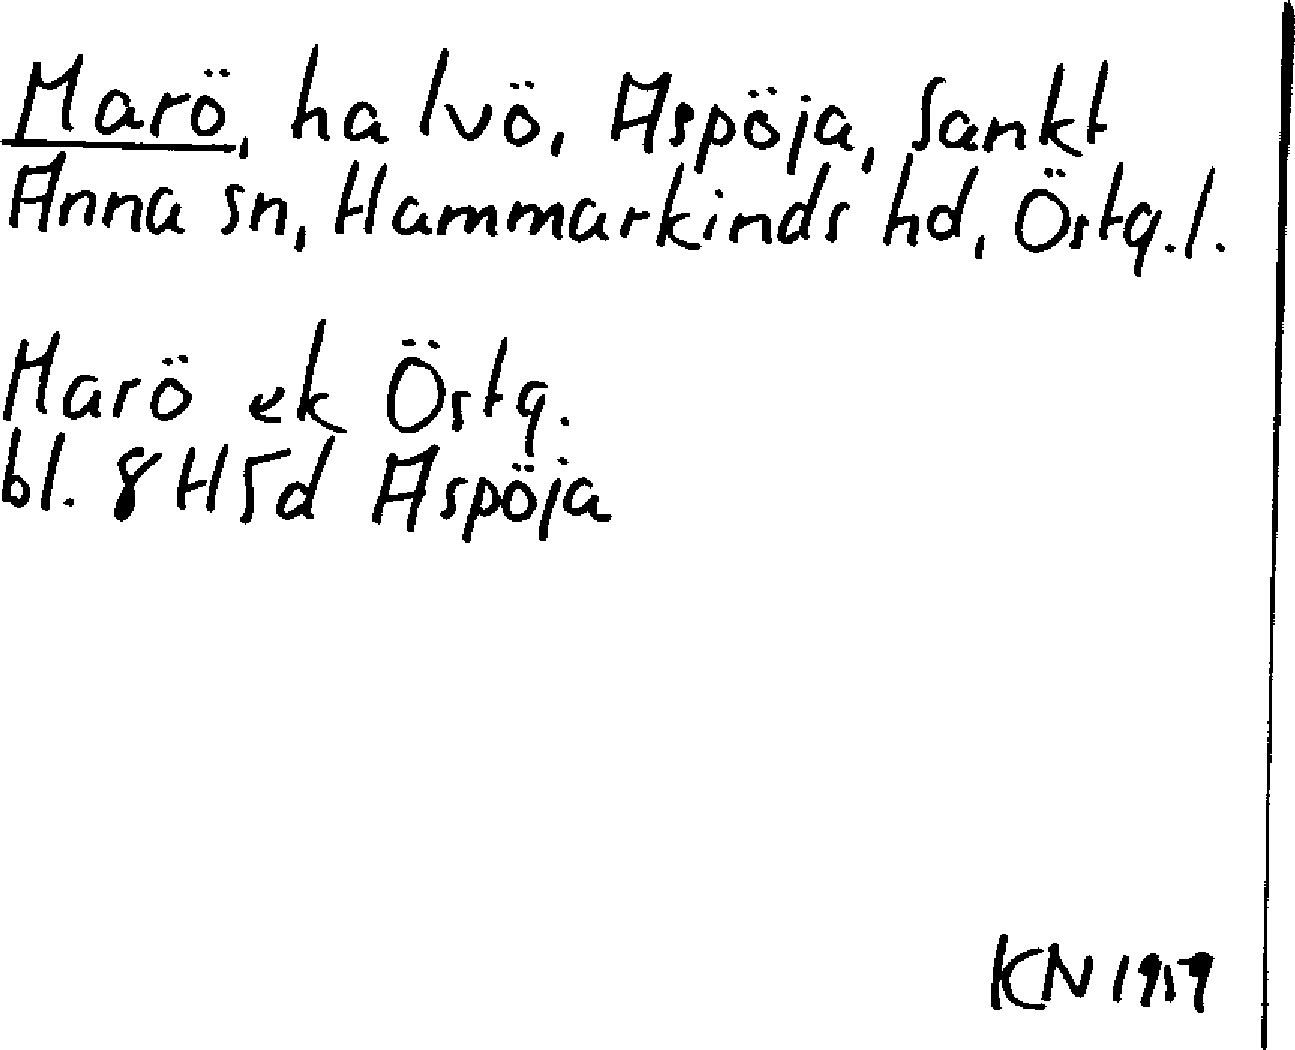 Marö, halvö, Aspöja, Sankt
Anna sn, Hammarkinds hd, Östg.l.
Marö ek Östg.
bl. 8H5d Aspöja
KN